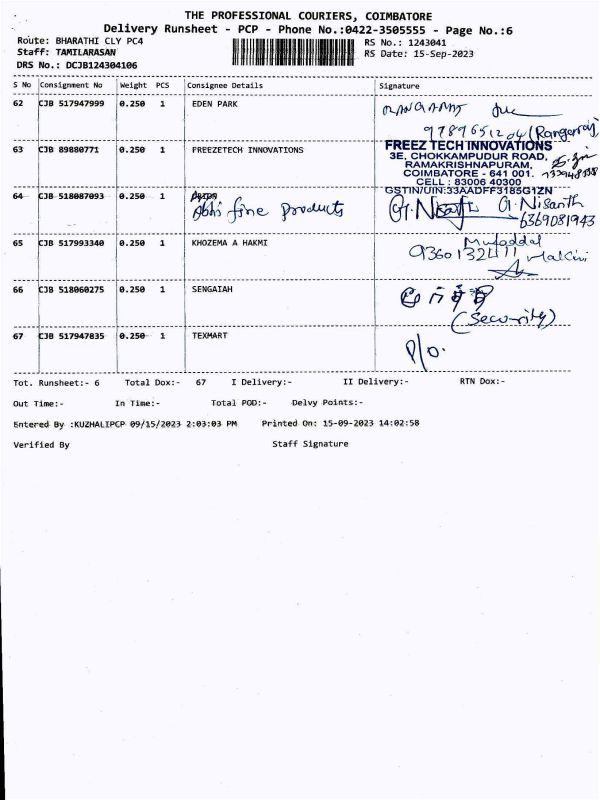 THE PROFESSIONAL COURIERS, COIMBATORE
Delivery Runsheet - PCP - Phone No.:0422-3505555 - Page No.:6
Route: BHARATHI CLY PC4
RS No.: 1243041
Staff: TAMILARASAN
RS Date: 15-Sep-2023
DRS No.: DCJB124304106
S No Consignment No Weight PCS Consignee Details Signature
62 CJB 517947999 0.250 1 EDEN PARK
9789651204 (Rangaraj)
63 CJB 89880771 0.250 1 FREEZETECH INNOVATIONS
FREEZ TECH INNOVATIONS
3E, CHOKKAMPUDUR ROAD,
RAMAKRISHNAPURAM,
COIMBATORE - 641 001.
CELL : 83006 40300
GSTIN/UIN:33AADFF3185G1ZN
64 CJB 518087093 0.250 1
Abhi fine products
G. Nisanth
6369081943
65 CJB 517993340 0.250 1 KHOZEMA A HAKMI
Mufaddal
9360132411 Hakimi
66 CJB 518060275 0.250 1 SENGAIAH
(Security)
67 CJB 517947835 0.250 1 TEXMART
P/o.
Tot. Runsheet:- 6 Total Dox:- 67 I Delivery:- II Delivery:- RTN Dox:-
Out Time:- In Time:- Total POD:- Delvy Points:-
Entered By :KUZHALIPCP 09/15/2023 2:03:03 PM Printed On: 15-09-2023 14:02:58
Verified By Staff Signature